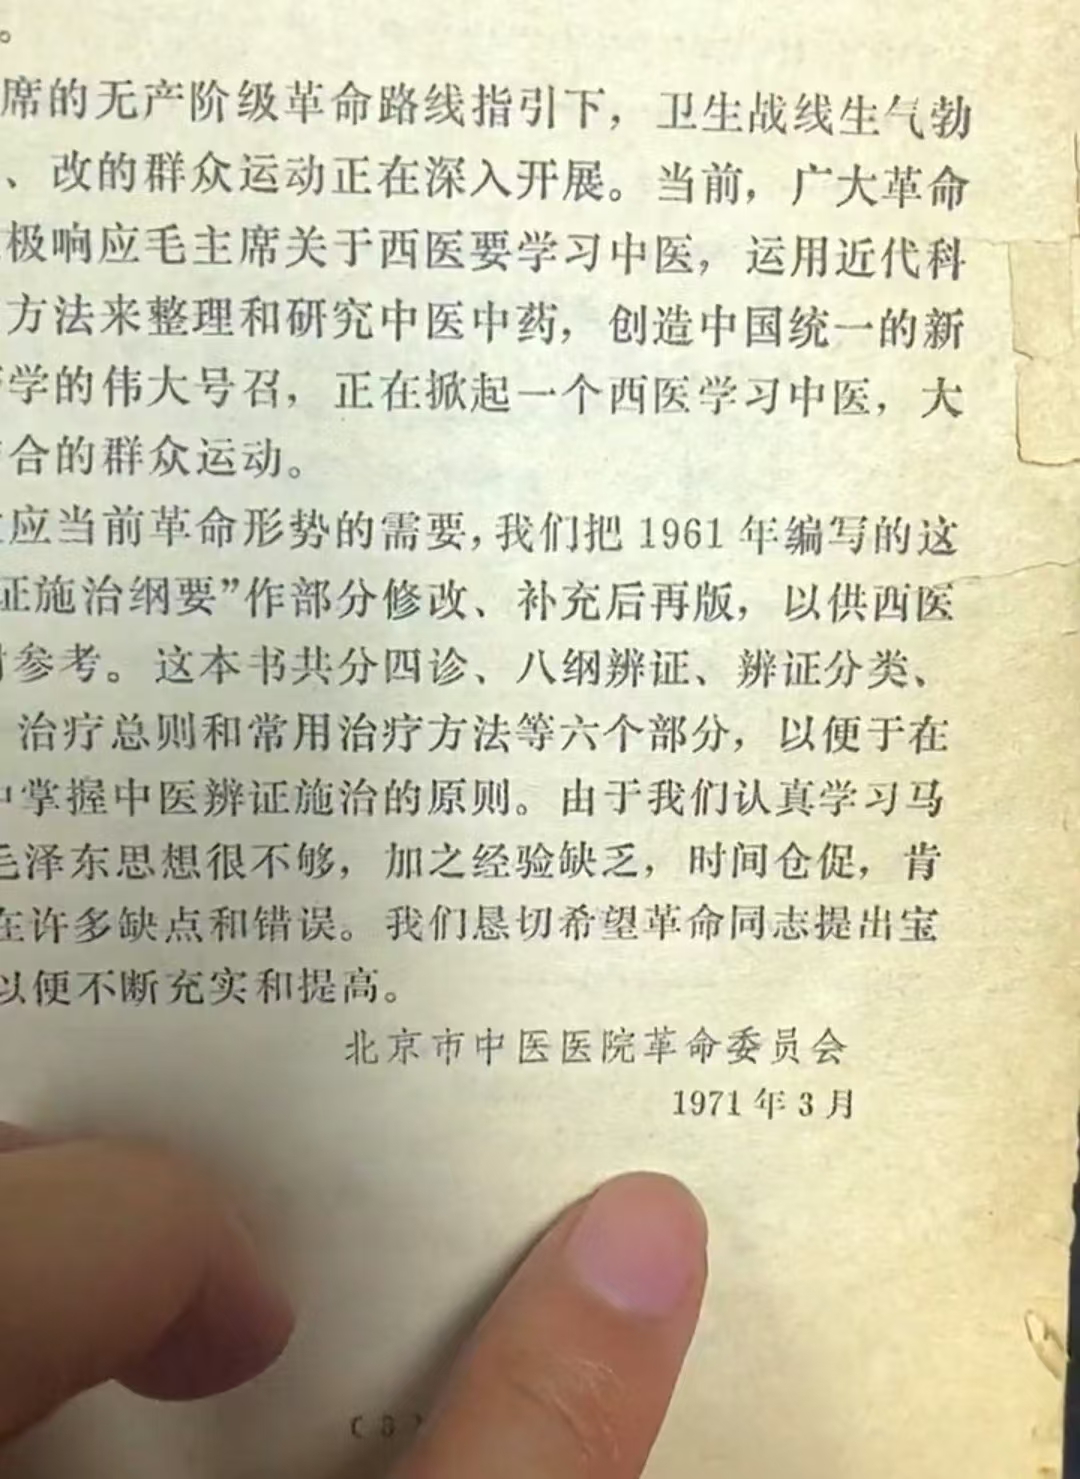 。
席的无产阶级革命路线指引下，卫生战线生气勃
、改的群众运动正在深入开展。当前，广大革命
极响应毛主席关于西医要学习中医，运用近代科
方法来整理和研究中医中药，创造中国统一的新
学的伟大号召，正在掀起一个西医学习中医，大
合的群众运动。
应当前革命形势的需要，我们把1961年编写的这
证施治纲要”作部分修改、补充后再版，以供西医
参考。这本书共分四诊、八纲辨证、辨证分类、
治疗总则和常用治疗方法等六个部分，以便于在
中掌握中医辨证施治的原则。由于我们认真学习马
毛泽东思想很不够，加之经验缺乏，时间仓促，肯
在许多缺点和错误。我们恳切希望革命同志提出宝
以便不断充实和提高。
北京市中医医院革命委员会
1971年3月